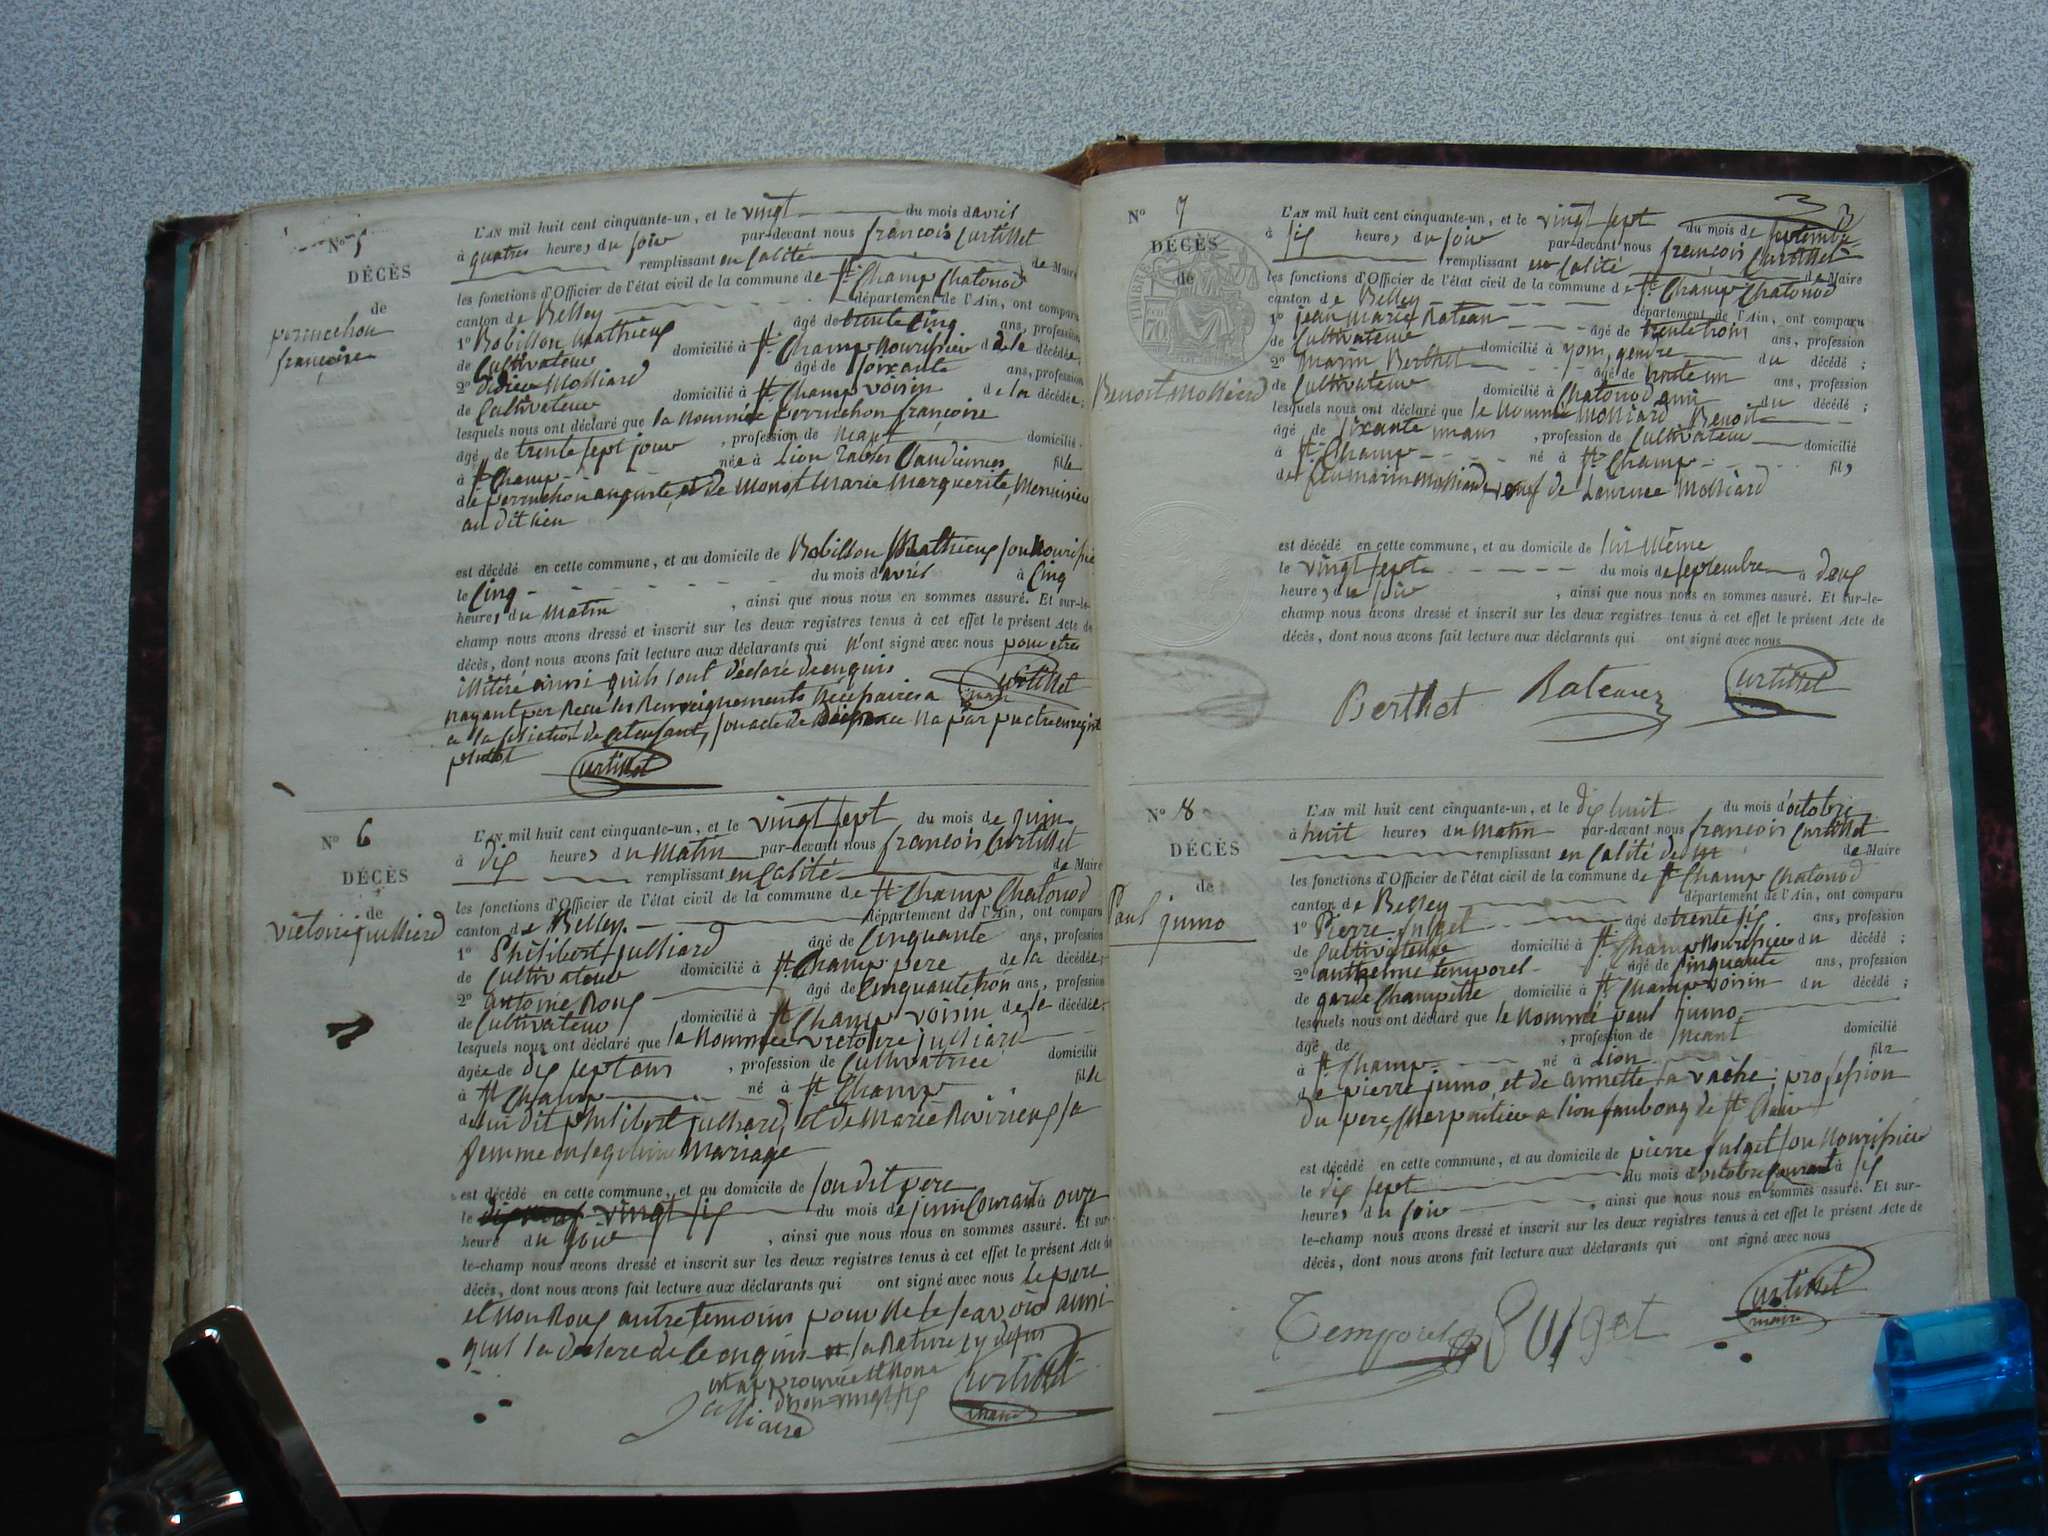 N° 5
DÉCÈS
de
perruchon
françoise
L'AN mil huit cent cinquante-un, et le vingt du mois d'avril
à quatres heures du soir par-devant nous françois Curtillet
remplissant en Calité de Maire
les fonctions d'Officier de l'état civil de la commune de St. Champ Chatonod
canton de Belley département de l'Ain, ont comparu
1° Bobillon Mathieux âgé de trente Cinq ans, profession
de Cultivateur domicilié à St. Champ nourissier de la décédée;
2° Didier Molliard âgé de soixante ans, profession
de Cultivateur domicilié à St. Champ voisin de la décédée;
lesquels nous ont déclaré que la nommée perruchon françoise
âgé de trente sept jour, profession de neant domicilié
à St Champ née à Lion fille
de perruchon auguste, et de Monot Marie Marguerite, Menuisier
au dit lieu
est décédé en cette commune, et au domicile de Bobillon Mathieux son nourissier
le Cinq du mois d'avril à Cinq
heures du matin, ainsi que nous nous en sommes assuré. Et sur-le-
champ nous avons dressé et inscrit sur les deux registres tenus à cet effet le présent Acte de
décès, dont nous avons fait lecture aux déclarants qui n'ont signé avec nous pour etres
illitéré ainsi quils l'ont déclaré de enquis Curtillet
nayant pas Recu les Renseignements nécessaires a maire
a la de cet enfant, son acte de na pas pu etre enregistré
plutot Curtillet
N° 6
DÉCÈS
de
victoire julliard
L'AN mil huit cent cinquante-un, et le vingt sept du mois de juin
à dix heures du Matin par-devant nous françois Curtillet
remplissant en Calité de Maire
les fonctions d'Officier de l'état civil de la commune de St Champ Chatonod
canton de Belley département de l'Ain, ont comparu
1° Philibert julliard âgé de Cinquante ans, profession
de Cultivateur domicilié à St. Champ pere de la décédée;
2° antoine Roux âgé de Cinquante trois ans, profession
de Cultivateur domicilié à St Champ voisin de la décédée;
lesquels nous ont déclaré que la nommée victoire julliard
âgée de dix sept ans, profession de Cultivatrice domicilié
à St Champ né à St Champ fille
du dit philibert julliard, et de Marie Rivirieux sa
femme en legitime Mariage
est décédé en cette commune, et au domicile de son dit pere
le vingt six du mois de juin Courant à onze
heure du soir, ainsi que nous nous en sommes assuré. Et sur-
le-champ nous avons dressé et inscrit sur les deux registres tenus à cet effet le présent Acte de
décès, dont nous avons fait lecture aux déclarants qui ont signé avec nous le pere
et non Roux autre temoins pour ne le savoir ainsi
quil la declaré de ce enquis la Rature cy dessus
est approuvée et bone Curtillet
dison vingt six maire
Julliard
N° 7
DÉCÈS
de
TIMBRE
70
Benoit Molliard
3
L'AN mil huit cent cinquante-un, et le vingt sept du mois de septembre
à six heures du soir par-devant nous françois Curtillet
remplissant en Calité de Maire
les fonctions d'Officier de l'état civil de la commune de St. Champ Chatonod
canton de Belley département de l'Ain, ont comparu
1° jean Marie Rateau âgé de trente trois ans, profession
de Cultivateur domicilié à yon, gendre du décédé;
2° Marin Berthet âgé de trente un ans, profession
de Cultivateur domicilié à Chatonod ami du décédé;
lesquels nous ont déclaré que le nommé Molliard Benoit
âgé de soixante un ans, profession de Cultivateur domicilié
à St. Champ né à St. Champ fils
de feu marin Molliard, veuf de Laurence Molliard
est décédé en cette commune, et au domicile de lui même
le vingt sept du mois de septembre à deux
heures du soir, ainsi que nous nous en sommes assuré. Et sur-le-
champ nous avons dressé et inscrit sur les deux registres tenus à cet effet le présent Acte de
décès, dont nous avons fait lecture aux déclarants qui ont signé avec nous
Berthet Rateau Curtillet
N° 8
DÉCÈS
de
Paul jumo
L'AN mil huit cent cinquante-un, et le dix huit du mois d'octobre
à huit heures du Matin par-devant nous françois Curtillet
remplissant en Calité de Maire
les fonctions d'Officier de l'état civil de la commune de St Champ Chatonod
canton de Belley département de l'Ain, ont comparu
1° Pierre Sulget âgé de trente six ans, profession
de Cultivateur domicilié à St. Champ nourissier du décédé;
2° anthelme temporel âgé de Cinquante ans, profession
de garde Champêtre domicilié à St Champ voisin du décédé;
lesquels nous ont déclaré que le nommé paul jumo
âgé de , profession de neant domicilié
à St Champ né à Lion fils
de pierre jumo, et de annette la vache; profession
du pere, Charpentier a lion faubourg de St Clair
est décédé en cette commune, et au domicile de pierre Sulget son nourissier
le dix sept du mois d'octobre Courant à six
heures du soir, ainsi que nous nous en sommes assuré. Et sur-
le-champ nous avons dressé et inscrit sur les deux registres tenus à cet effet le présent Acte de
décès, dont nous avons fait lecture aux déclarants qui ont signé avec nous
Temporel Sulget Curtillet
maire